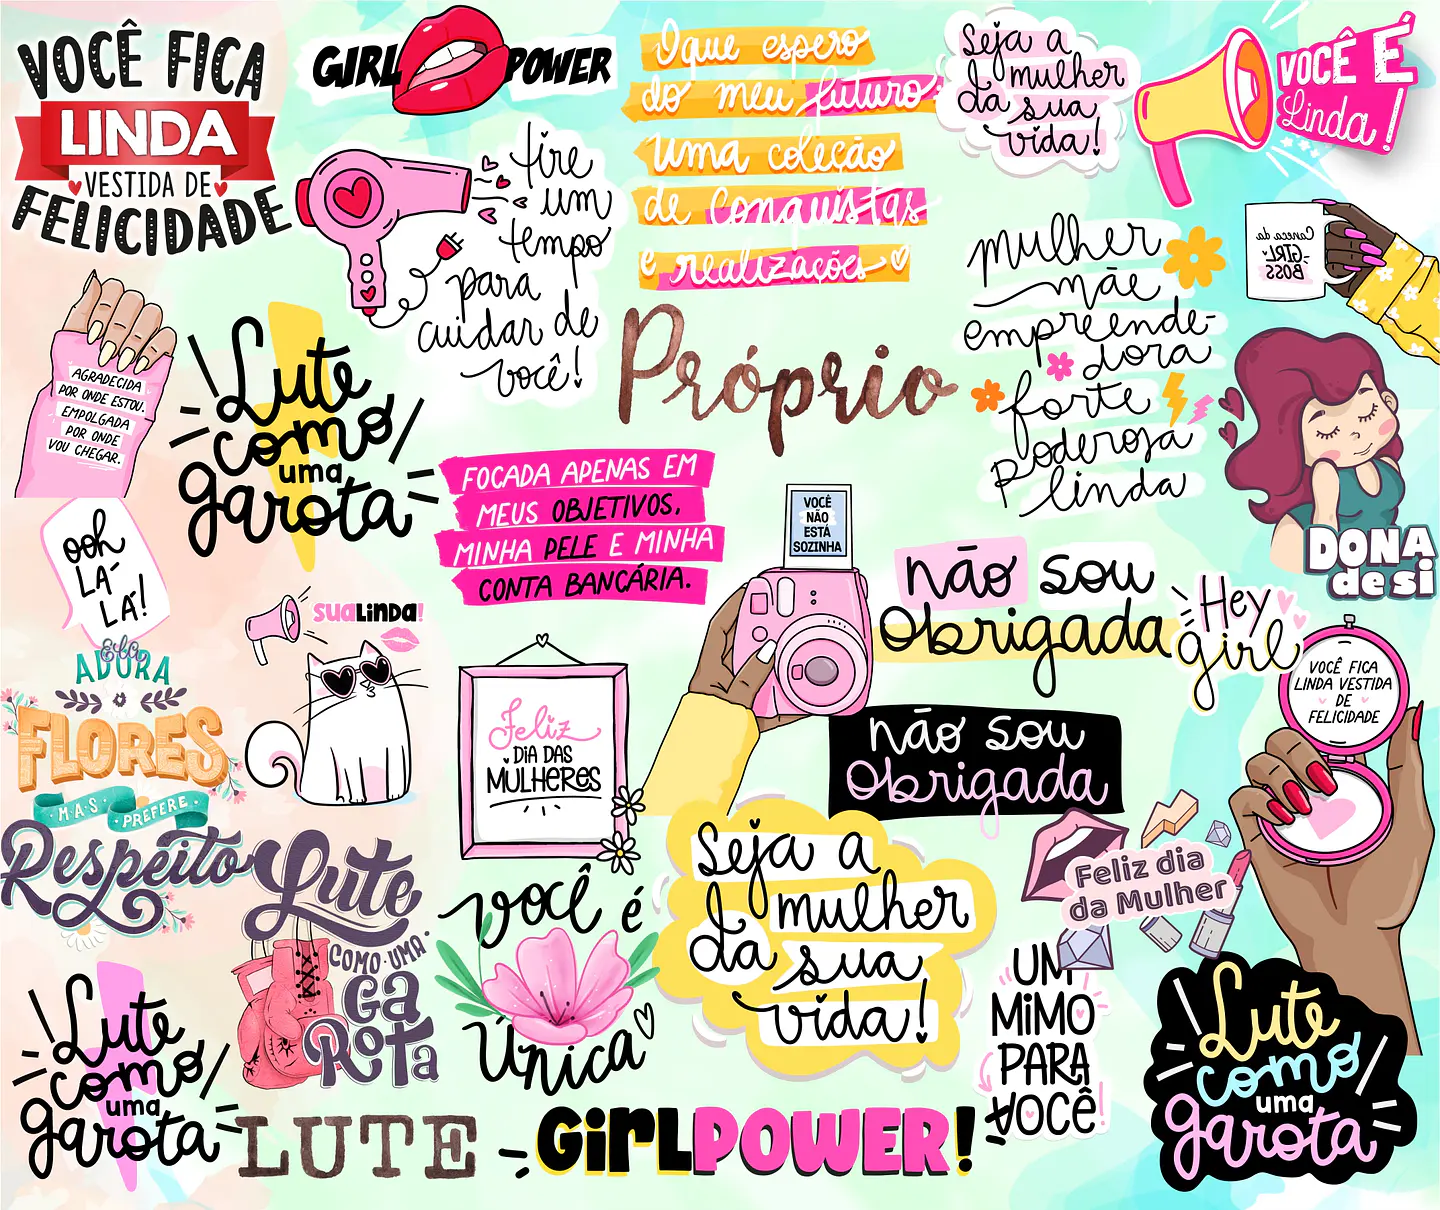 VOCÊ FICA
LINDA
VESTIDA DE
FELICIDADE
GIRL POWER
O que espero
do meu futuro:
uma coleção
de conquistas
e realizações
Seja a
mulher
da sua
vida!
VOCÊ É
Linda!
tire
um
tempo
para
cuidar de
você!
mulher
mãe
empreende-
dora
forte
poderosa
linda
Caneca da
GIRL
BOSS
AGRADECIDA
POR ONDE ESTOU.
EMPOLGADA
POR ONDE
VOU CHEGAR.
Lute
como
uma
garota
Próprio
DONA
de si
FOCADA APENAS EM
MEUS OBJETIVOS,
MINHA PELE E MINHA
CONTA BANCÁRIA.
VOCÊ
NÃO
ESTÁ
SOZINHA
ooh
LÁ-
LÁ!
SUA LINDA!
não sou
Obrigada
Hey
girl
VOCÊ FICA
LINDA VESTIDA
DE
FELICIDADE
Ela
ADORA
FLORES
MAS PREFERE
Respeito
Feliz
DIA DAS
MULHERES
não sou
Obrigada
Seja a
mulher
da sua
vida!
Feliz dia
da Mulher
Lute
COMO UMA
GA
ROTA
você é
Única
UM
MIMO
PARA
VOCÊ!
Lute
como
uma
garota
Lute
como
uma
garota
LUTE
GIRLPOWER!